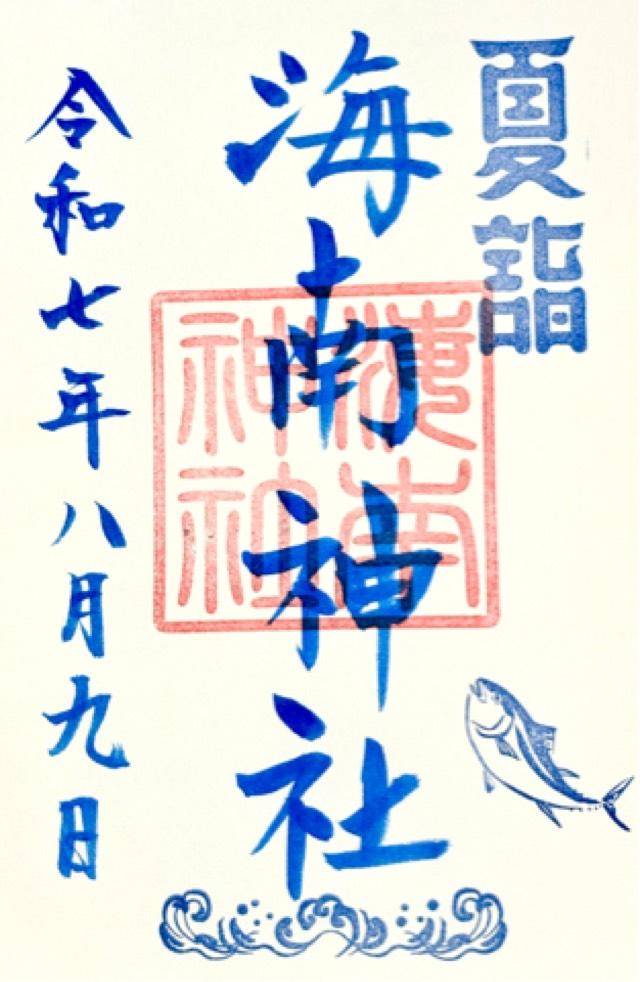 夏詣
海南神社
海南
神社
令和七年八月九日